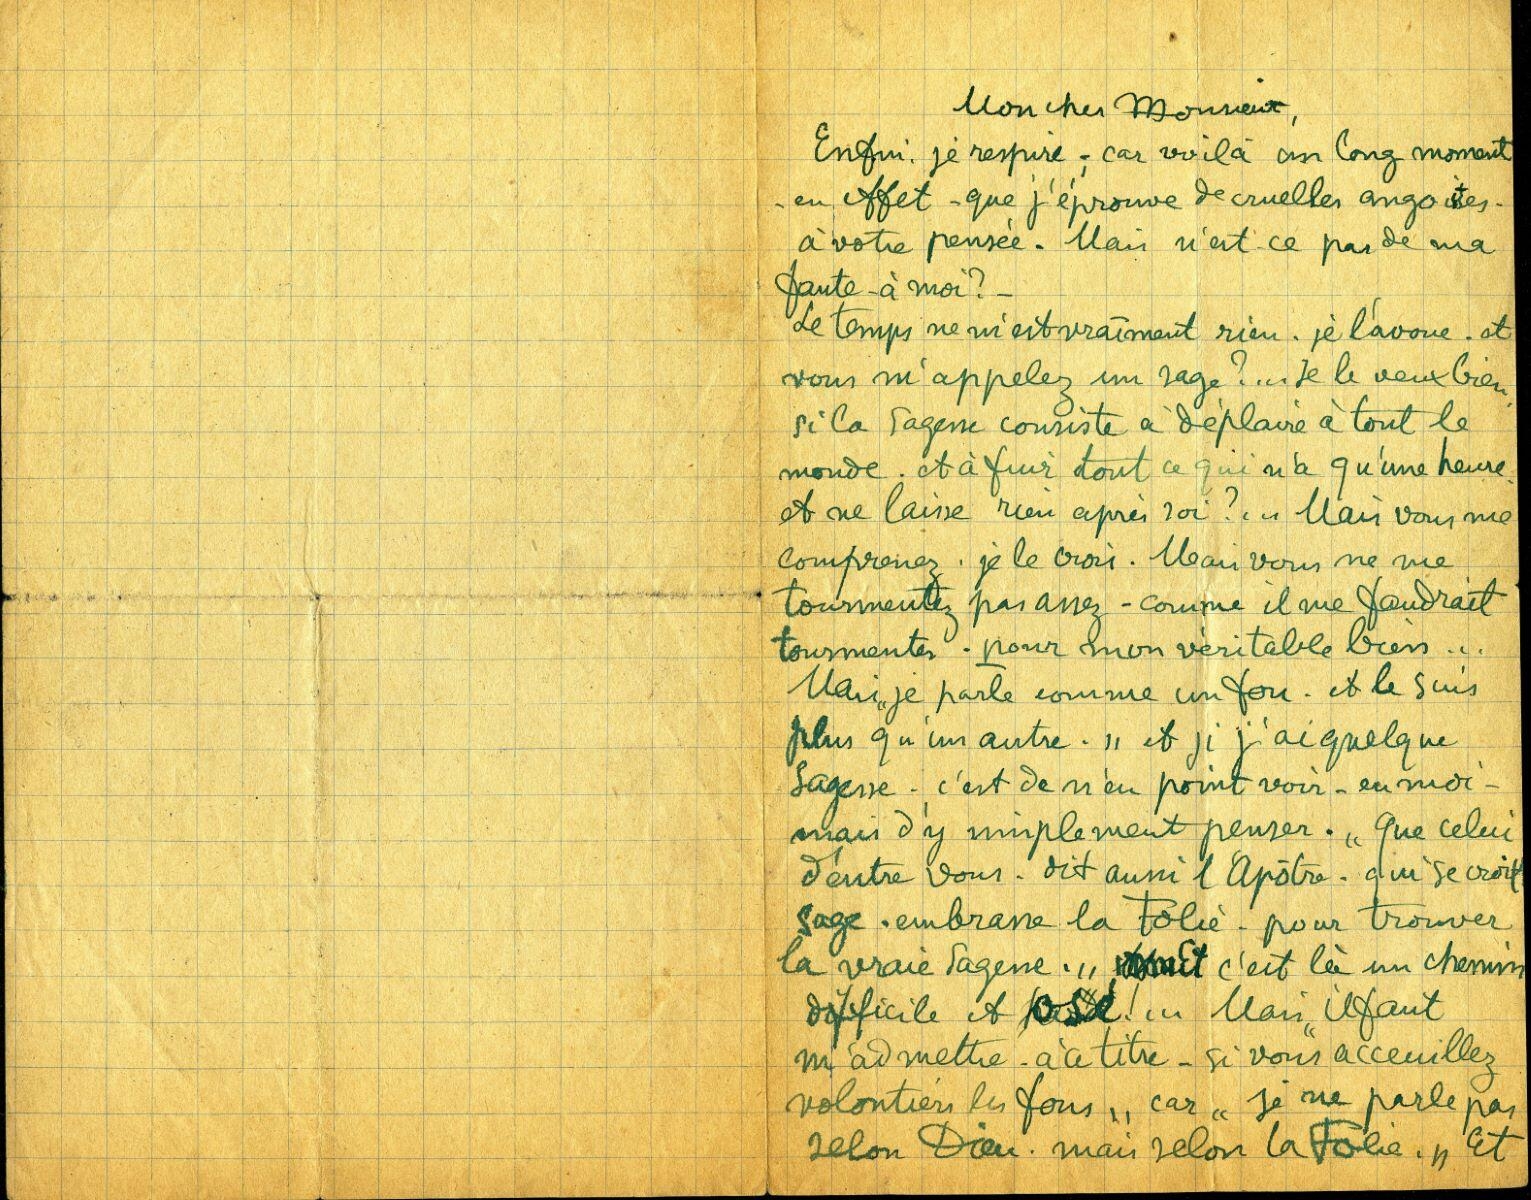 Mon cher Monsieur,
Enfin. je respire; car voilà un long moment
- en effet - que j'éprouve de cruelles angoisses -
à votre pensée. Mais n'est-ce pas de ma
faute - à moi? -
Le temps ne m'est vraiment rien. je l'avoue. et
vous m'appelez un sage?... Je le veux bien,
si la Sagesse consiste à déplaire à tout le
monde. et à fuir tout ce qui n'a qu'une heure.
et ne laisse rien après soi?... Mais vous me
comprenez. je le crois. Mais vous ne me
tourmentez pas assez - comme il me faudrait
tourmenter - pour mon véritable bien...
Mais „je parle comme un fou. et le suis
plus qu'un autre." et si j'ai quelque
Sagesse - c'est de n'en point voir - en moi -
mais d'y simplement penser. „Que celui
d'entre vous - dit aussi l'Apôtre - qui se croit
sage. embrasse la Folie - pour trouver
la vraie Sagesse." c'est là un chemin
difficile et osé!... Mais „il faut
m'admettre - à ce titre - si vous acceuillez
volontiers les fous" car „je ne parle pas
selon Dieu. mais selon la Folie." Et